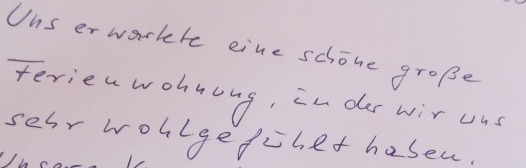 Uns erwartete eine schöne große
Ferienwohnung, in der wir uns
sehr wohlgefühlt haben.